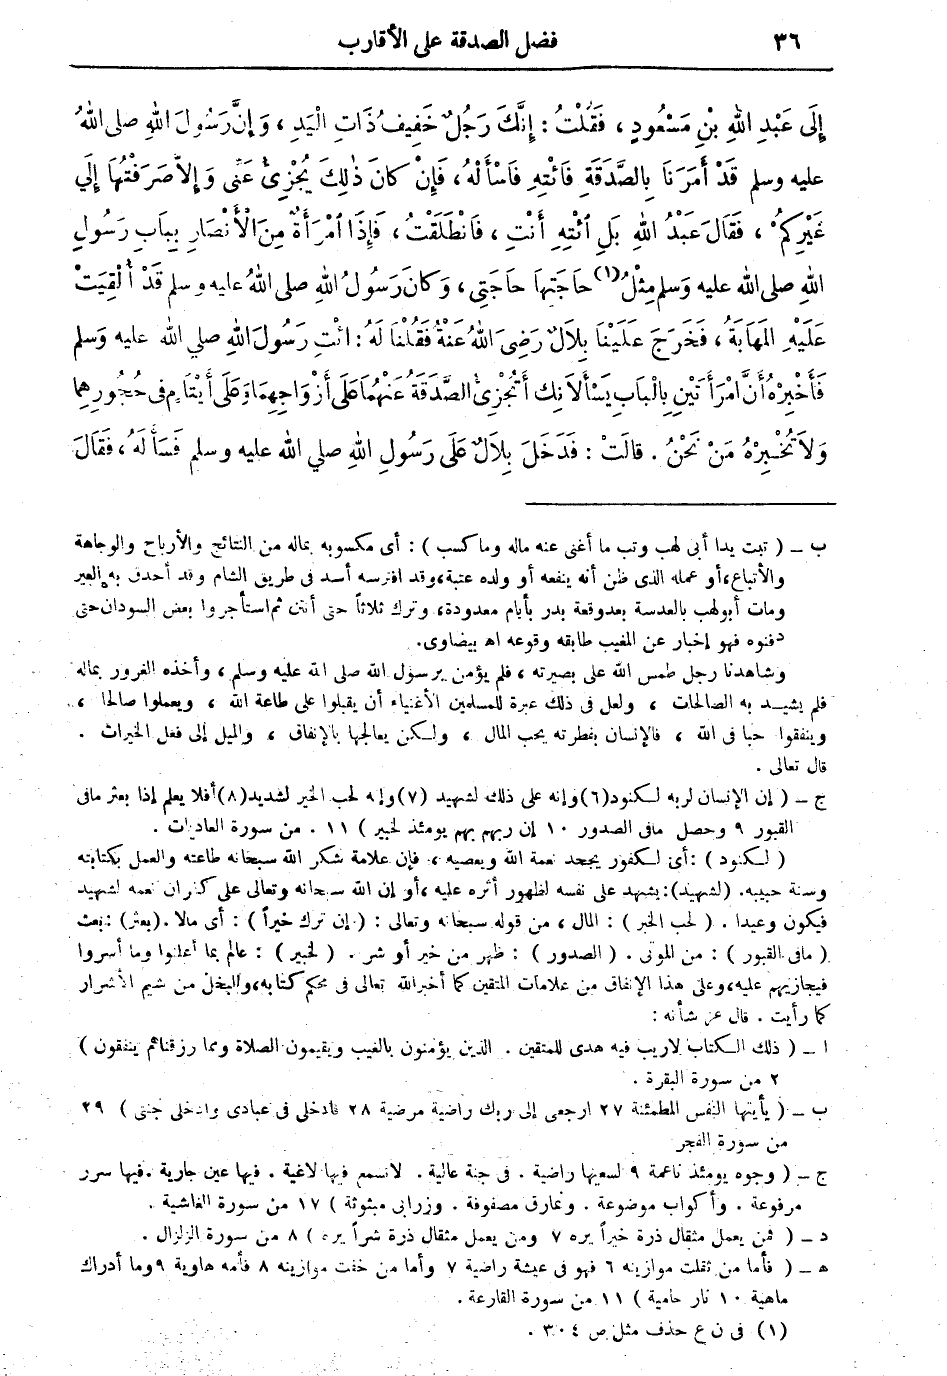 ٣٦
فضل الصدقة على الأقارب
إِلَى عَبْدِ اللهِ بْنِ مَسْعُودٍ ، فَقُلْتُ : إِنَّكَ رَجُلٌ خَفِيفُ ذَاتِ الْيَدِ ، وَإِنَّ رَسُولَ اللهِ صلى اللهُ
عليه وسلم قَدْ أَمَرَنَا بِالصَّدَقَةِ فَائْتِهِ فَاسْأَلْهُ ، فَإِنْ كَانَ ذٰلِكَ يُجْزِئُ عَنِّى وَإِلاَّ صَرَفْتُهَا إِلَي
غَيْرِكُمْ ، فَقَالَ عَبْدُ اللهِ بَلِ ائْتِهِ أَنْتِ ، فَانْطَلَقْتُ ، فَإِذَا امْرَأَةٌ مِنَ الْأَنْصَارِ بِبَابِ رَسُولِ
اللهِ صلى الله عليه وَسَلم مِثْلُ (١) حَاجَتِهَا حَاجَتِي ، وَكَانَ رَسُولُ اللهِ صلى اللهُ عليه وسلم قَدْ أُلْقِيَتْ
عَلَيْهِ الْمَهَابَةُ ، فَخَرَجَ عَلَيْنَا بِلَالٌ رَضِىَ اللهُ عَنْهُ فَقُلْنَا لَهُ : ائْتِ رَسُولَ اللهِ صلي الله عليه وَسلم
فَأَخْبِرْهُ أَنَّ امْرَأَتَيْنِ بِالْبَابِ يَسْأَلَانِكَ أَتُجْزِئُ الصَّدَقَةُ عَنْهُمَا عَلَى أَزْوَاجِهِمَا وَعَلَى أَيْتَامٍ فى حُجُورِهِمَا
وَلاَ تُخْبِرْهُ مَنْ نَحْنُ . قالَتْ : فَدَخَلَ بِلاَلٌ عَلَى رَسُولِ اللهِ صلي الله عليه وسلم فَسَأَلَهُ ، فَقَالَ
ب – ( تبت يدا أبى لهب وتب ما أغنى عنه ماله وما كسب ) : أى مكسوبه بماله من النتائج والأرباح والوجاهة
والأتباع، أو عمله الذى ظن أنه ينفعه أو ولده عتبة، وقد افترسه أسد فى طريق الشام وقد أحدق به العير
ومات أبو لهب بالعدسة بعد وقعة بدر بأيام معدودة، وترك ثلاثاً حتى أنتن ثم استأجروا بعض السودان حتى
دفنوه فهو إخبار عن المغيب طابقه وقوعه اه بيضاوى.
وشاهدنا رجل طمس الله على بصيرته ، فلم يؤمن برسول الله صلى الله عليه وسلم ، وأخذه الغرور بماله
فلم يشيد به الصالحات ، ولعل فى ذلك عبرة للمسلمين الأغنياء أن يقبلوا على طاعة الله ، ويعملوا صالحا ،
وينفقوا حبا فى الله ، فالإنسان بفطرته يحب المال ، ولكن يعالجها بالإنفاق ، والميل إلى فعل الخيرات .
قال تعالى .
ج – ( إن الإنسان لربه لكنود (٦) وإنه على ذلك لشهيد (٧) وإنه لحب الخير لشديد (٨) أفلا يعلم إذا بعثر مافى
القبور ٩ وحصل مافى الصدور ١٠ إن ربهم بهم يومئذ لخبير ) ١١ . من سورة العاديات .
( لكنود ) : أى لكفور يجحد نعمة الله ويعصيه ، فإن علامة شكر الله سبحانه طاعته والعمل بكتابته
وسنة حبيبه. (لشهيد): يشهد على نفسه لظهور أثره عليه ، أو إن الله سبحانه وتعالى على كفران نعمه لشهيد
فيكون وعيدا . ( لحب الخير ) : المال ، من قوله سبحانه وتعالى : ( إن ترك خيراً ) : أى مالا . (بعثر) : بعث
( مافى القبور ) : من الموتى . ( الصدور ) : ظهر من خير أو شر . ( لخبير ) : عالم بما أعلنوا وما أسروا
فيجازيهم عليه، وعلى هذا الإنفاق من علامات المتقين كما أخبر الله تعالى فى محكم كتابه، والبخل من شيم الأشرار
كما رأيت . قال عز شأنه :
ا – ( ذلك الكتاب لاريب فيه هدى للمتقين . الذين يؤمنون بالغيب ويقيمون الصلاة ومما رزقناهم ينفقون )
٢ من سورة البقرة .
ب – ( يأيتها النفس المطمئنة ٢٧ ارجعى إلى ربك راضية مرضية ٢٨ فادخلى فى عبادى وادخلى جنتى ) ٢٩
من سورة الفجر
ج – ( وجوه يومئذ ناعمة ٩ لسعيها راضية . فى جنة عالية . لاتسمع فيها لاغية . فيها عين جارية . فيها سرر
مرفوعة . وأكواب موضوعة . ونمارق مصفوفة . وزرابى مبثوثة ) ١٧ من سورة الغاشية .
د – ( فمن يعمل مثقال ذرة خيراً يره ٧ ومن يعمل مثقال ذرة شراً يره ) ٨ من سورة الزلزال .
ه – ( فأما من ثقلت موازينه ٦ فهو فى عيشة راضية ٧ وأما من خفت موازينه ٨ فأمه هاوية ٩ وما أدراك
ماهية ١٠ نار حامية ) ١١ من سورة القارعة .
(١) فى ن ع حذف مثل ص ٣٠٤ .